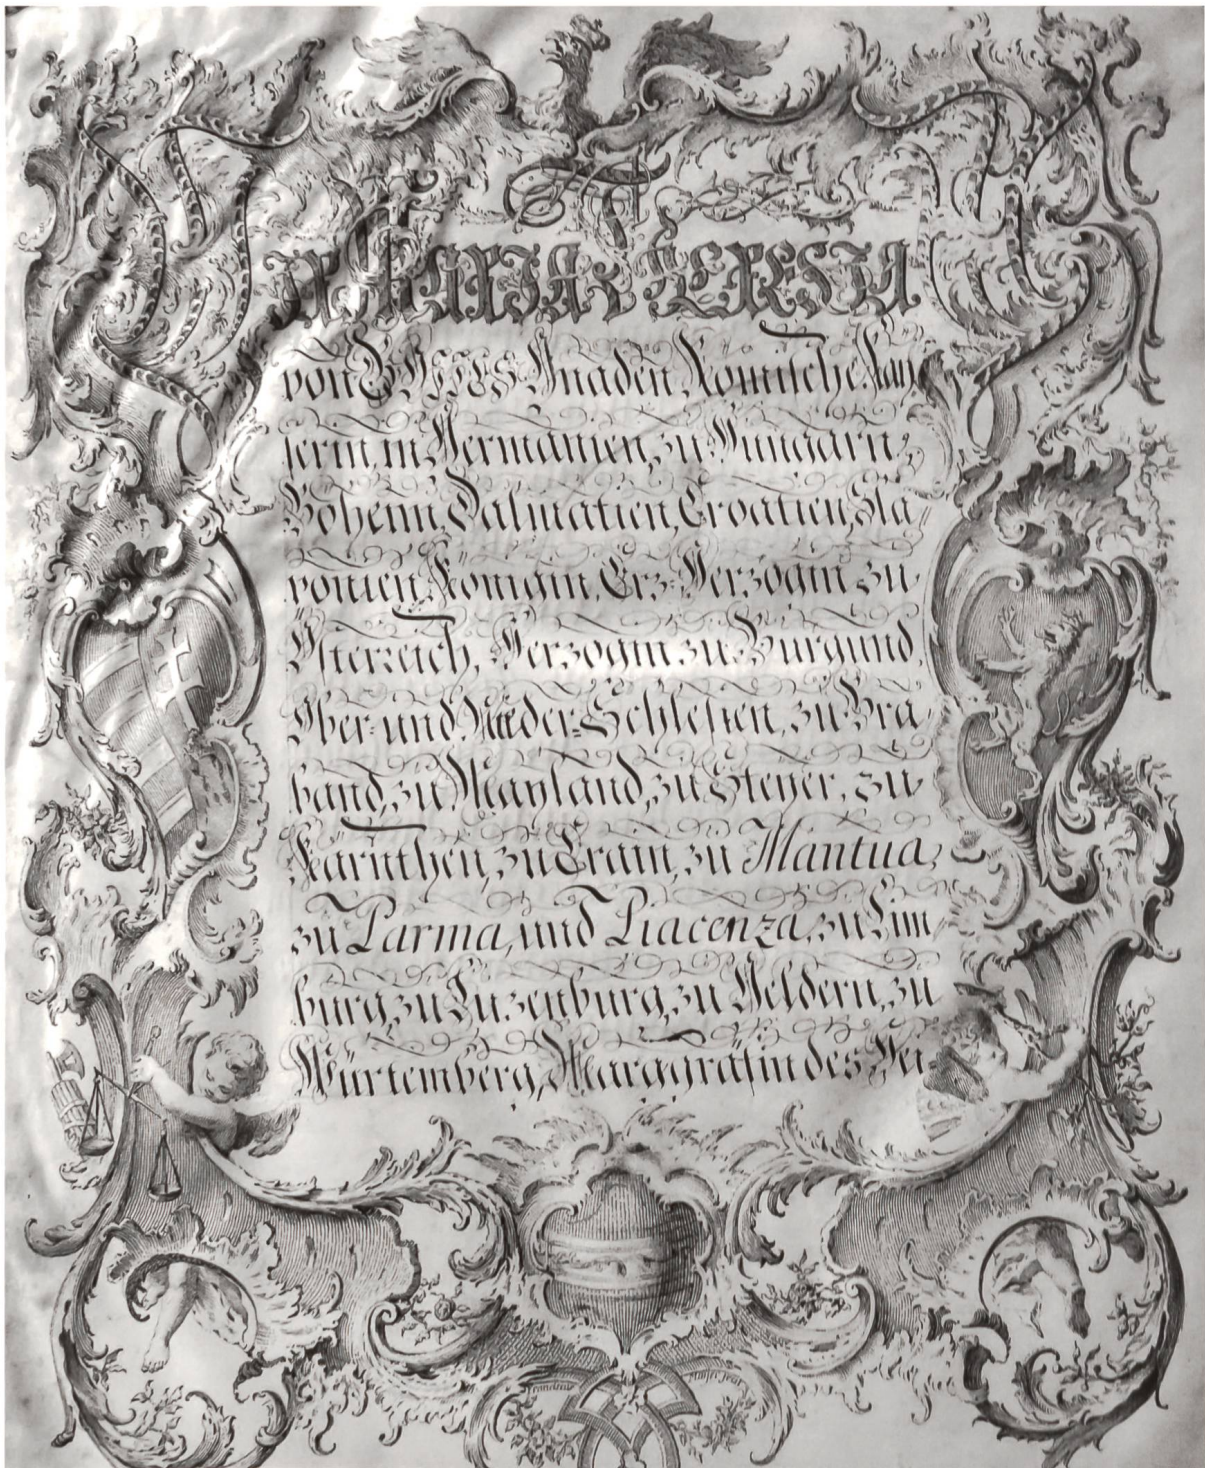 WIR MARIA THERESIA
von GOTTES Gnaden Römische Kay
serin, in Germanien, zu Hungarn,
Böheim, Dalmatien, Croatien, Sla=
vonien Königin, Erz=Herzogin zu
Österreich, Herzogin zu Burgund,
Ober= und Nieder=Schlesien, zu Bra
band, zu Mayland, zu Steyer, zu
Kärnthen, zu Crain, zu Mantua,
zu Parma, und Piacenza, zu Lim
burg, zu Luzenburg, zu Geldern, zu
Würtemberg, Marggräfin des Hei